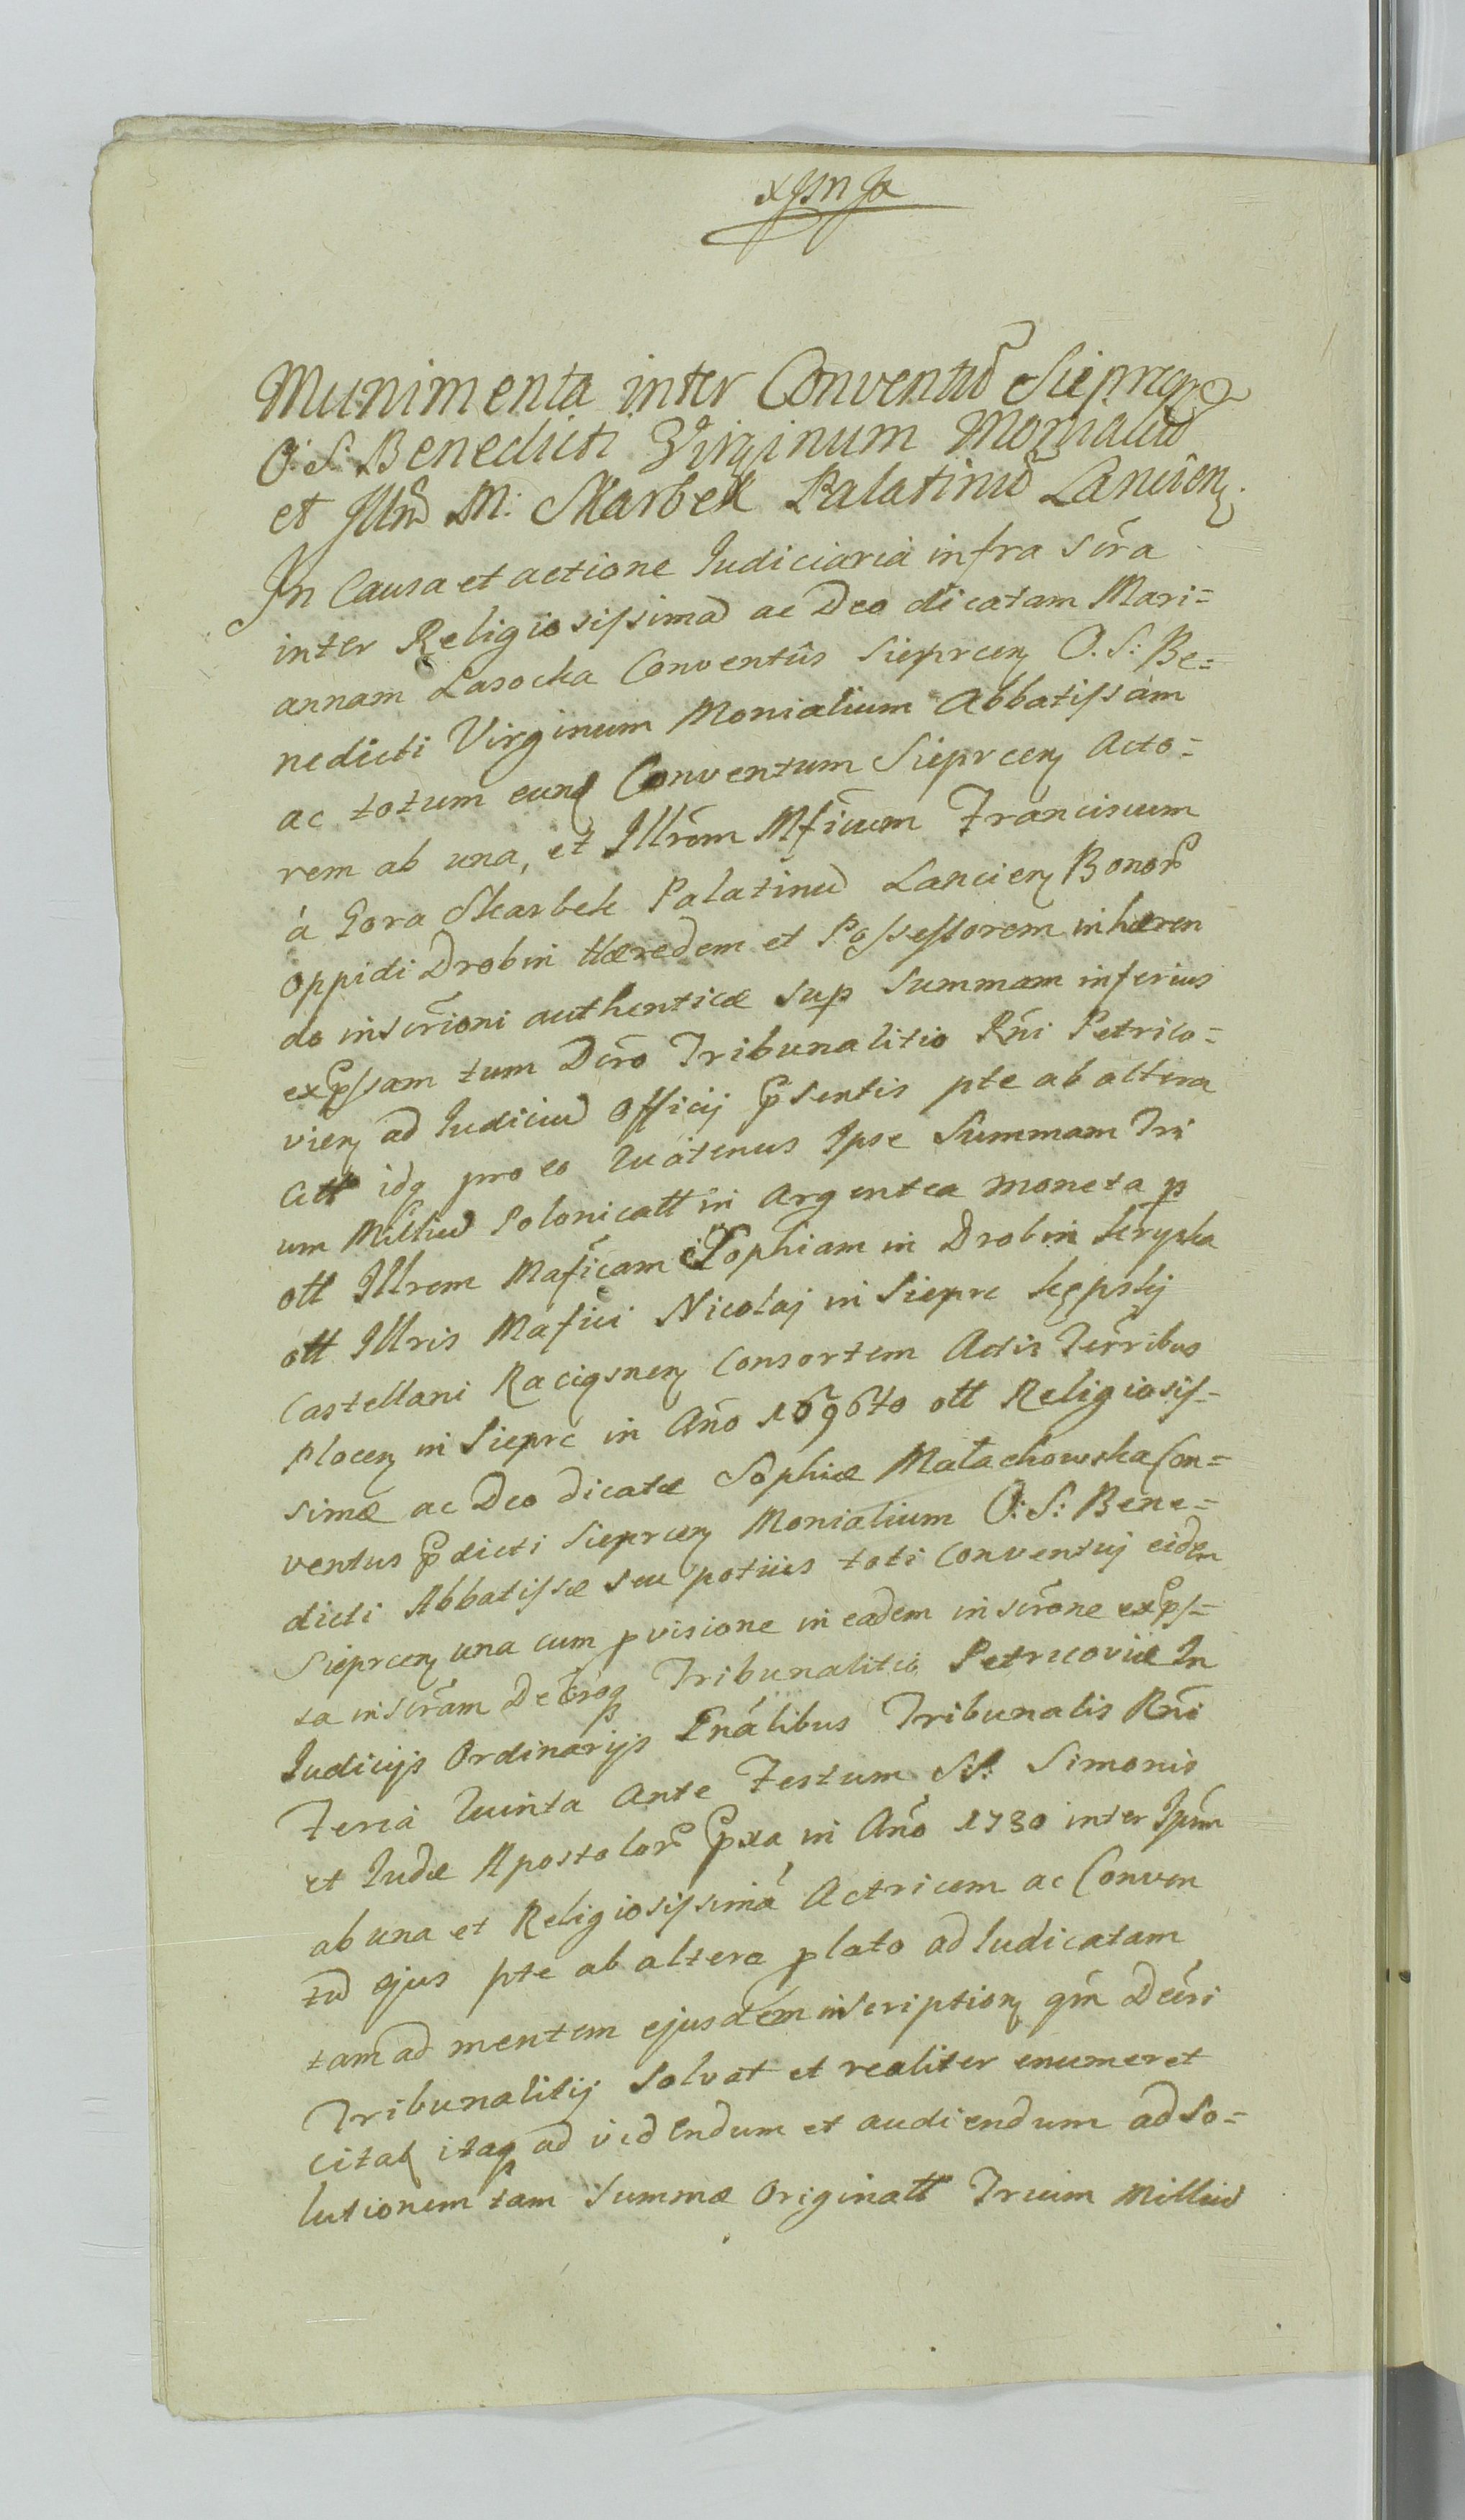 Munimenta inter Conventũ Sieprcen
O: S: Benedicti Virginum Monialiũ
et Illrẽ M: Skarbek Palatinũ Lancien:
In Causa et actione Iudiciaria infra scra
inter Religiosissimã ac Deo dicatam Mari=
annam Lasocka Conventûs Sieprcen O. S: Be=
nedicti Virginum Monialium Abbatissam
ac totum eund Conventum Sieprcen Acto=
rem ab una, et Illrẽm Mficum Franciscum
à Gora Skarbek Palatinũ Lancien Bonorũ
oppidi Drobin Hæredem et Possessorem inhæren
do inscrioni authenticæ sup Summam inferius
expssam tum Dcro Tribunalitio Rni Petrico=
vien ad Iudiciũ Officij psentis pte ab altera
Citt idq pro eo Quatenus Ipse Summam Tri
um Milliũ Polonicatt in Argentea moneta p
ott Illrem Maficam Sophiam in Drobin Kryska
ott Illris Mafici Nicolaj in Sieprc Kępskj
Castellani Raciąznen Consortem Actis Terribus
Plocen in Sieprc in Ano 1696to ott Religiosis=
simæ ac Deo dicatæ Sophiæ Małachowska Con=
ventus pdicti Sieprcen Monialium O: S: Bene=
dicti Abbatissæ seu potiùs toti Conventuj eidem
Sieprcen una cum pvisione in eadem inscrone exps=
sa inscram Decroq Tribunalitio Petricoviæ In
Iudicijs Ordinarijs Gnalibus Tribunalis Rni
Feria Quinta Ante Festum SS: Simonis
et Iudæ Apostolorũ pxa in Ano 1730 inter Ipsum
ab una et Religiosissimã Actricem ac Conven
tũ ejus pte ab altera plato adIudicatam
tam ad mentem ejusdem inscription qm Decri
Tribunalitij Solvat et realiter enumeret
Citatt itaq ad videndum et audiendum adso=
lutionem tam Summæ Originatt Trium Milliũ